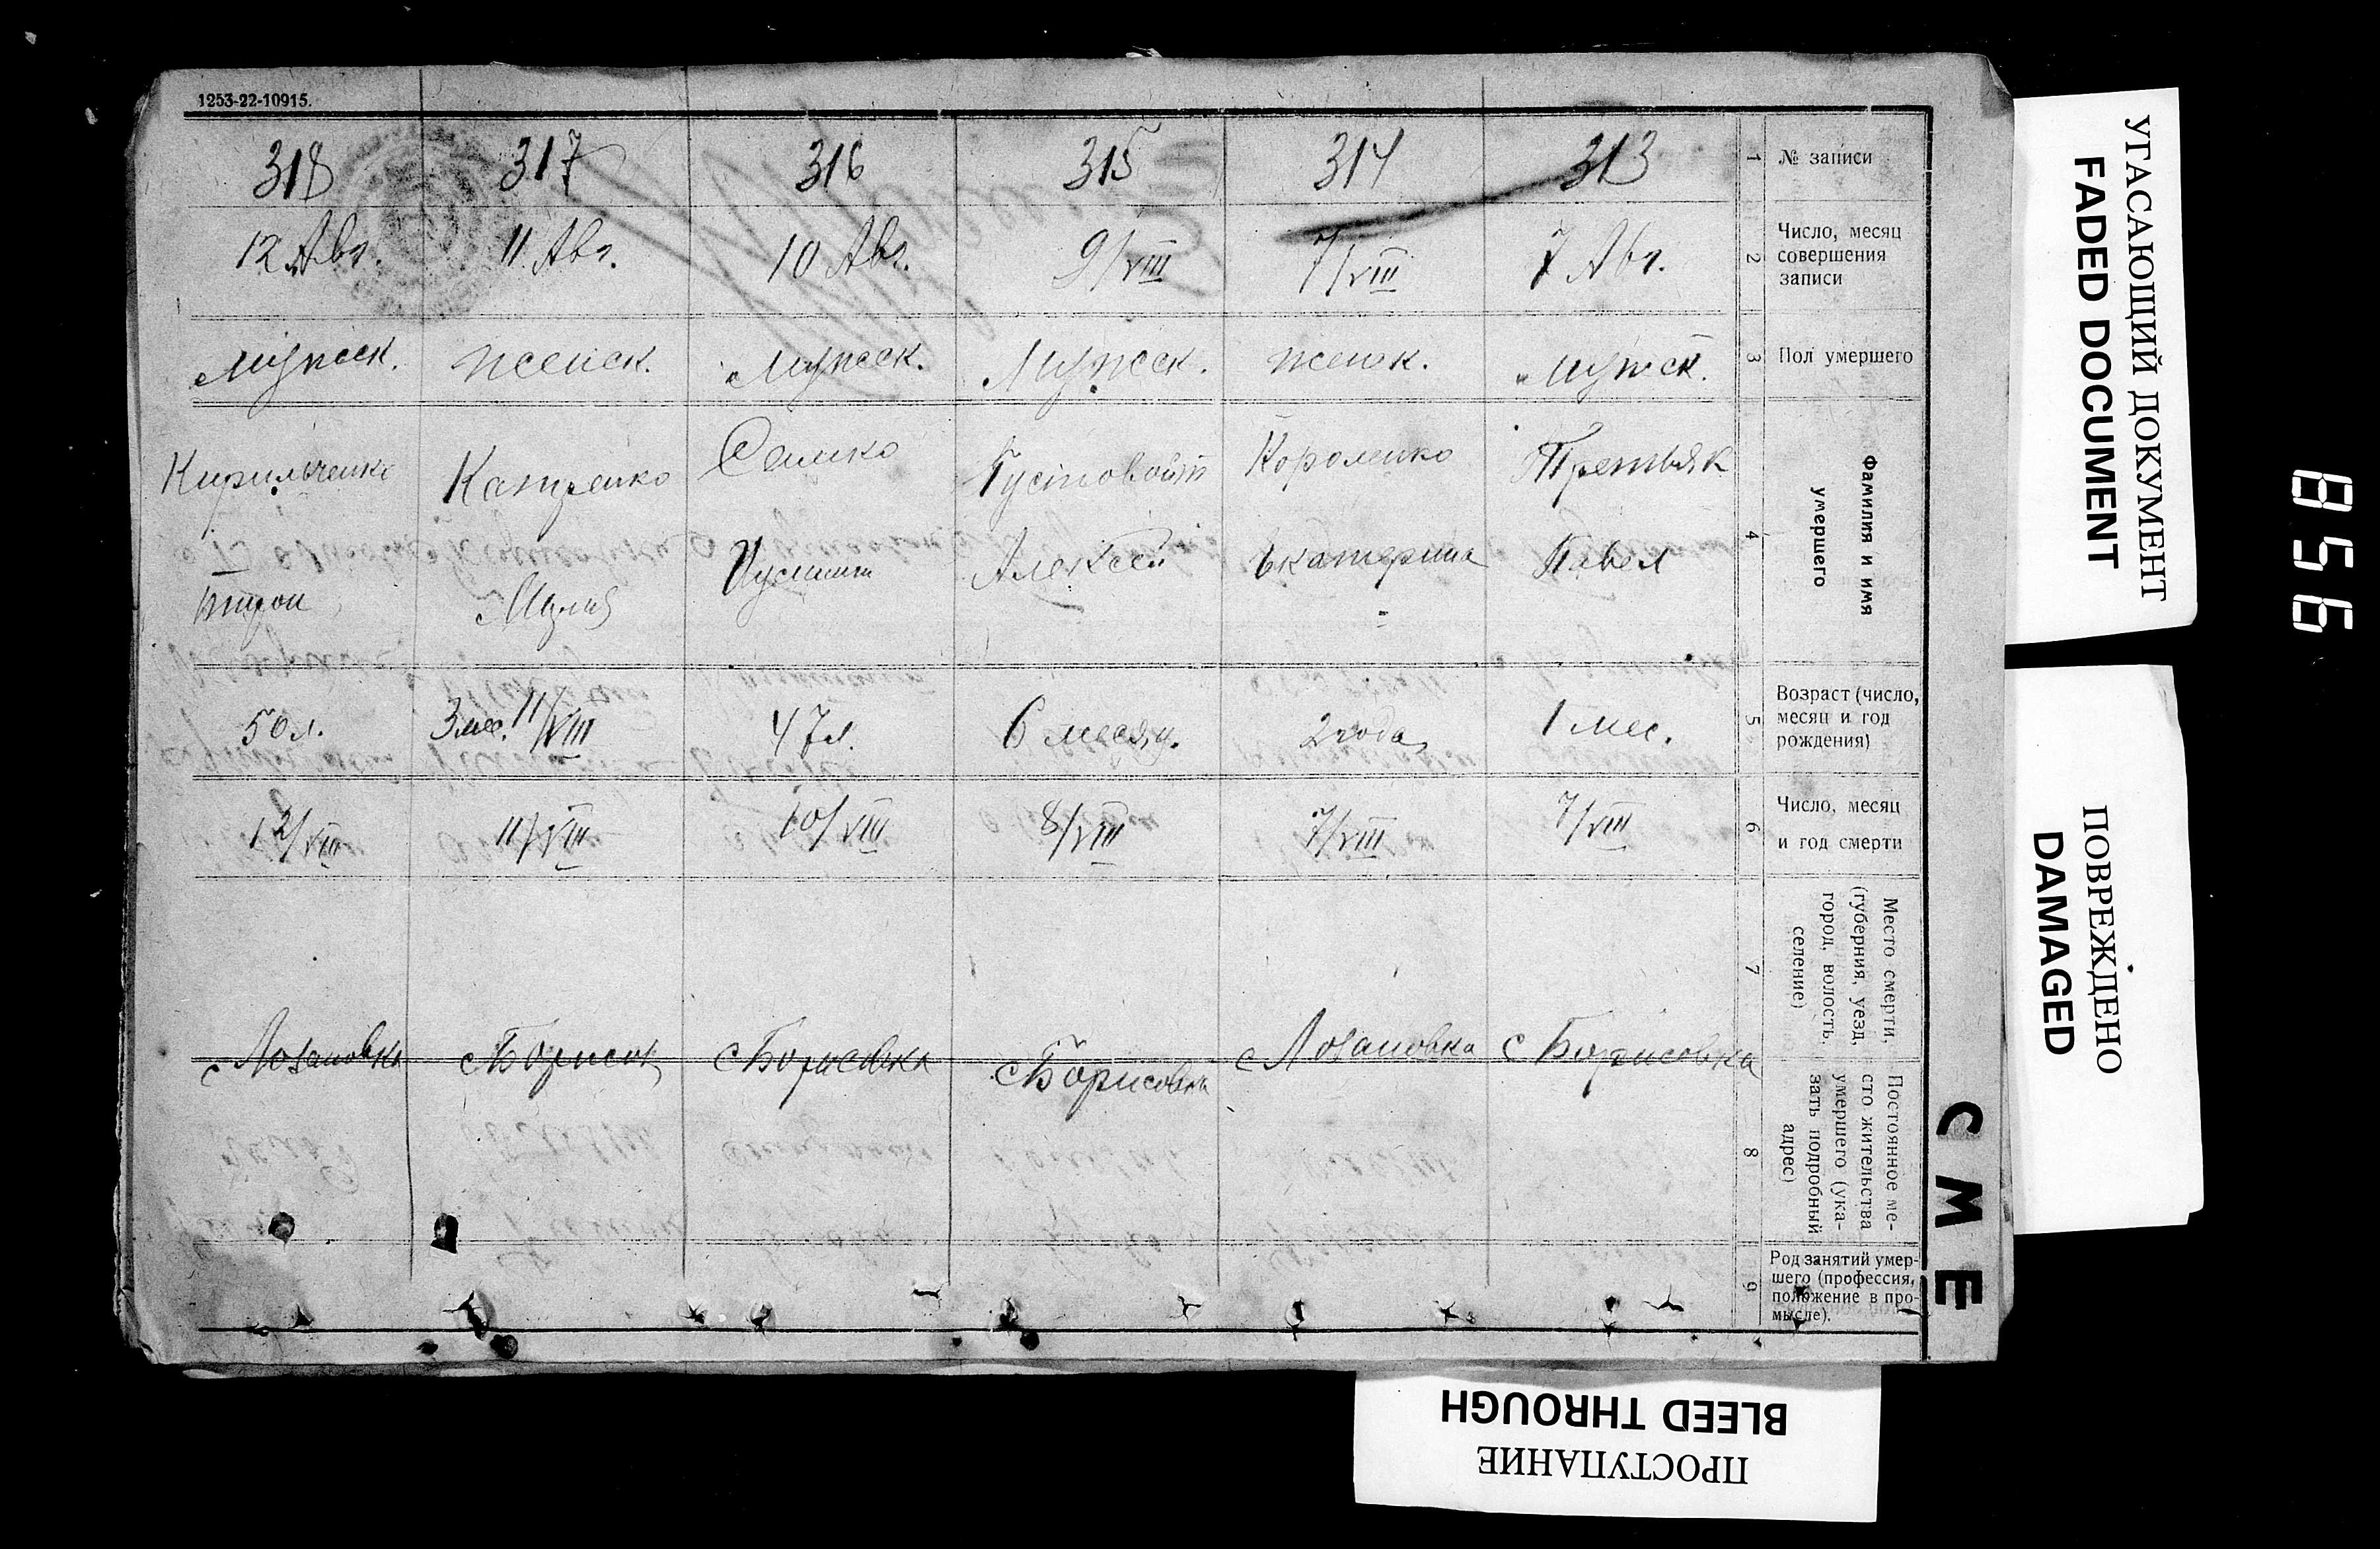 1253-22-10915.
318
317
316
315
314
313
1
№ записи
12 Авг.
11 Авг.
10 Авг.
9/VIII
7/VIII
7 Авг.
2
Число, месяц
совершения
записи
мужск.
женск.
мужск.
Мужск.
женск.
мужск.
3
Пол умершего
Кириличенко
Катренко
Семко
Пустовойт
Короленко
Третьяк
Мария
Алексей
Екатерина
Павел
4
Фамилия и имя
умершего
50 л.
3 мес. 11/VIII
47 л.
6 месяц.
2 года
1 мес.
5
Возраст (число,
месяц и год
рождения)
12/VIII
11/VIII
10/VIII
8/VIII
7/VIII
7/VIII
6
Число, месяц
и год смерти
с Лозановка
с Борисов
с Борисовка
с Борисовка
с Лозановка
с Борисовка
7
Место смерти,
(губерния, уезд,
город, волость,
селение)
8
Постоянное ме-
сто жительства
умершего (ука-
зать подробный
адрес)
9
Род занятий умер-
шего (профессия,
положение в про-
мысле).
УГАСАЮЩИЙ ДОКУМЕНТ
FADED DOCUMENT
ПОВРЕЖДЕНО
DAMAGED
СМЕ
BLEED THROUGH
ПРОСТУПАНИЕ
856